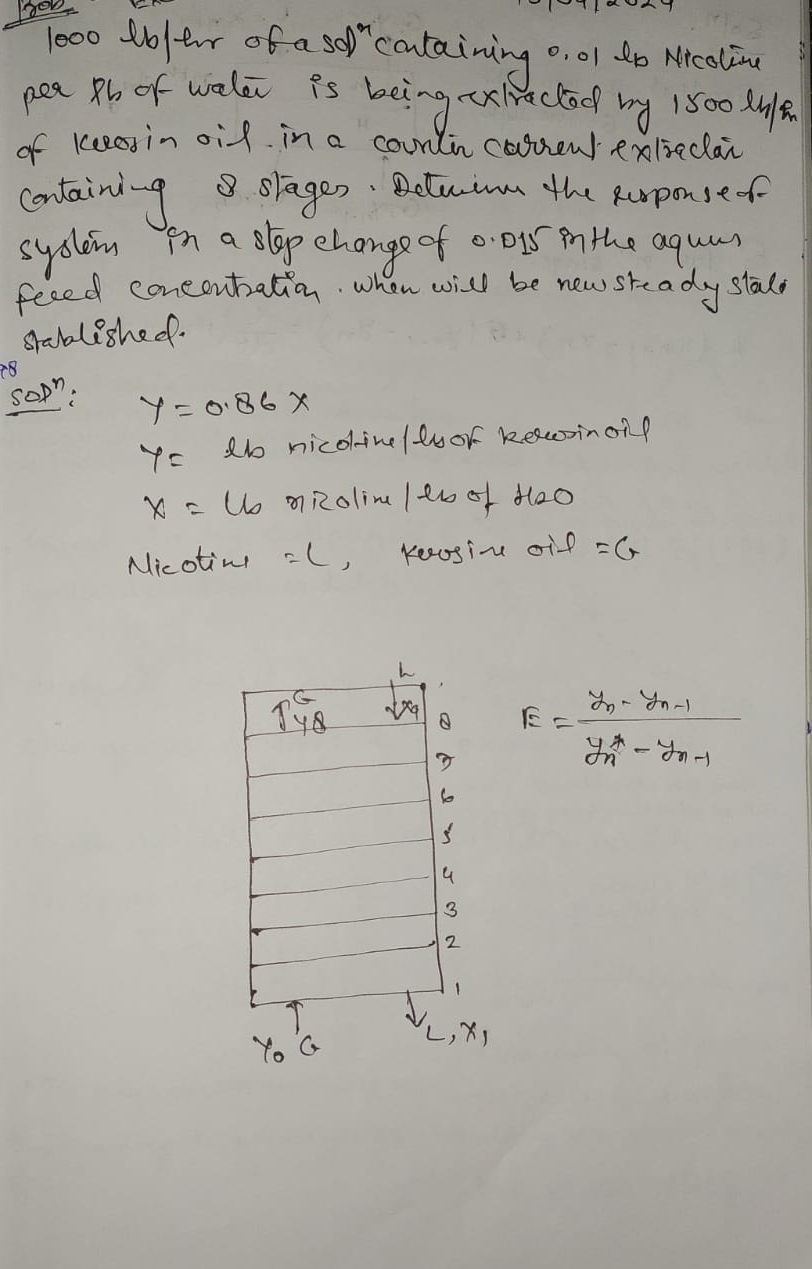 Prob.
10/04/2024
1000 lb/hr of a solⁿ containing 0.01 lb Nicotine
per lb of water is being extracted by 1500 lb/hr
of kerosin oil in a counter current extractor
containing 8 stages. Determine the response of
system in a step change of 0.015 in the aquus
feeed concentration. when will be new steady state
stablished.
solⁿ:
Y = 0.86 X
Y = lb nicotine/lbs of kerosin oil
X = lb nicotine/lbs of H2O
Nicotine = L, kerosine oil = G
L
G
Y8
X9
8
7
6
5
4
3
2
1
E = yn - yn-1
yn* - yn-1
Y0 G
L, X1